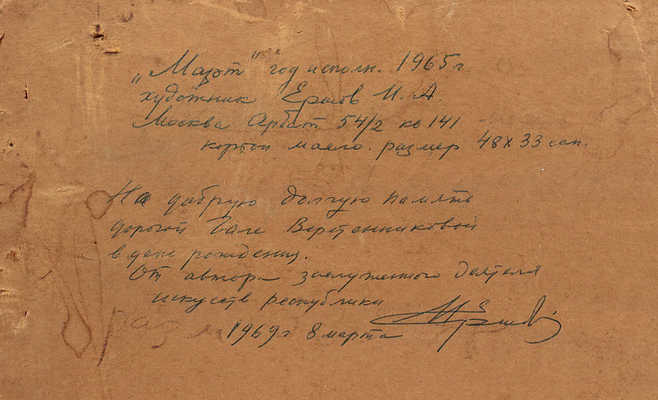 „Март“ год исполн. 1965 г
художник Ершов И. А.
Москва Арбат 54/2 кв 141
картон масло. размер 48 х 33 сан.
На добрую долгую память
дорогой Гале Веретенниковой
в день рождения.
От автора заслуженного деятеля
искусств республики
1969 г 8 марта